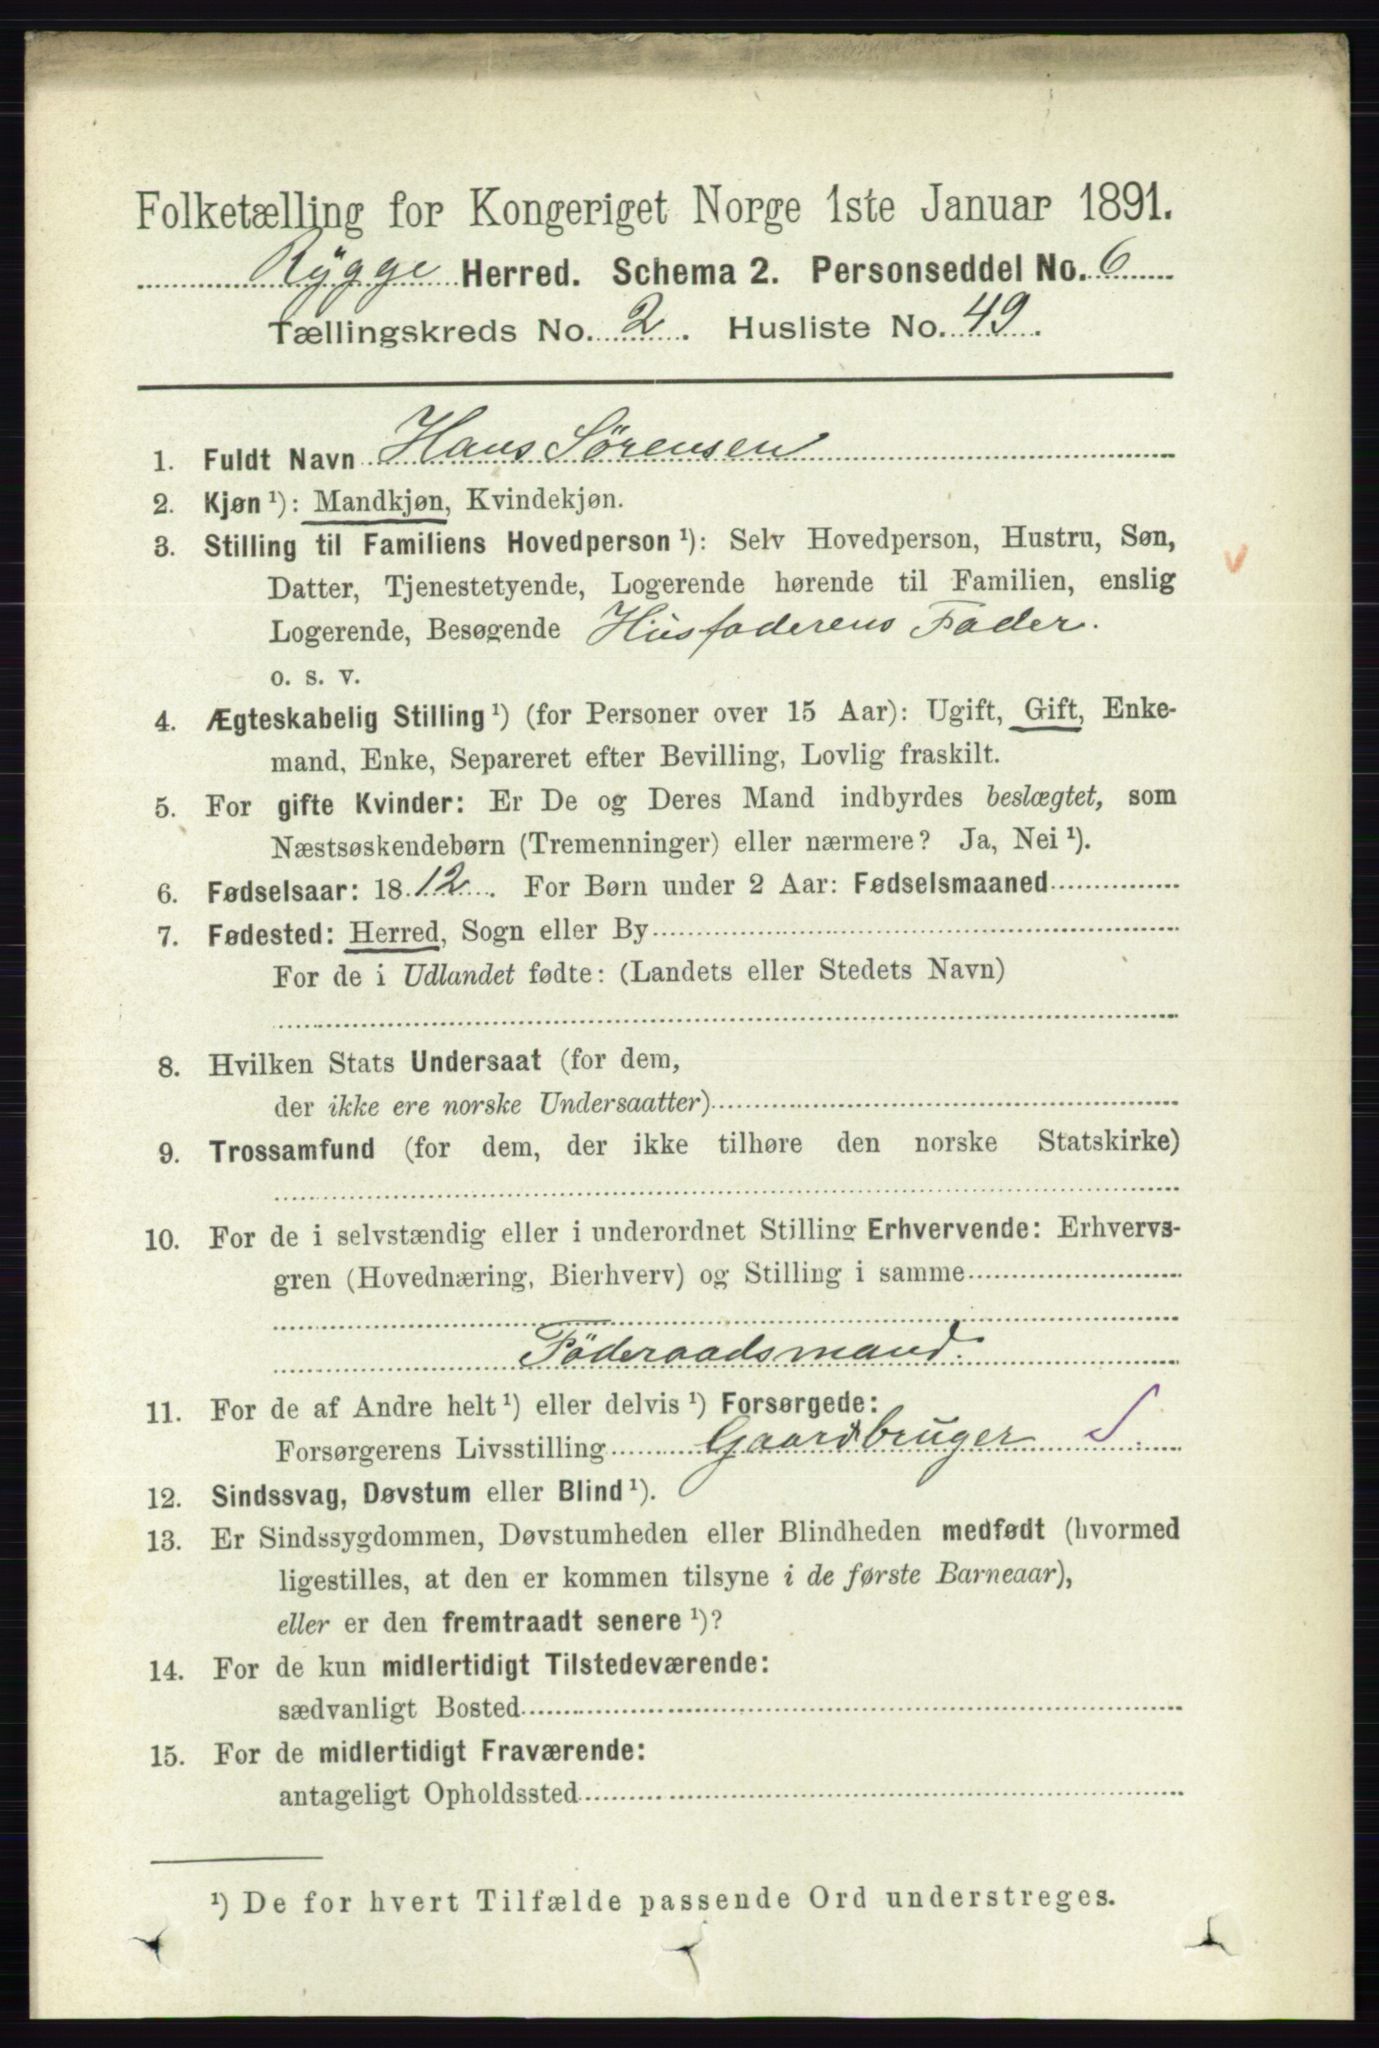 Folketælling for Kongeriget Norge 1ste Januar 1891.
Rygge Herred. Schema 2. Personseddel No. 6
Tællingskreds No. 2. Husliste No. 49.
1. Fuldt Navn Hans Sørensen
2. Kjøn ¹): Mandkjøn, Kvindekjøn.
3. Stilling til Familiens Hovedperson ¹): Selv Hovedperson, Hustru, Søn,
Datter, Tjenestetyende, Logerende hørende til Familien, enslig
Logerende, Besøgende Husfaderens Fader.
o. s. v.
4. Ægteskabelig Stilling ¹) (for Personer over 15 Aar): Ugift, Gift, Enke-
mand, Enke, Separeret efter Bevilling, Lovlig fraskilt.
5. For gifte Kvinder: Er De og Deres Mand indbyrdes beslægtet, som
Næstsøskendebørn (Tremenninger) eller nærmere? Ja, Nei ¹).
6. Fødselsaar: 1812. For Børn under 2 Aar: Fødselsmaaned
7. Fødested: Herred, Sogn eller By
For de i Udlandet fødte: (Landets eller Stedets Navn)
8. Hvilken Stats Undersaat (for dem,
der ikke ere norske Undersaatter)
9. Trossamfund (for dem, der ikke tilhøre den norske Statskirke)
10. For de i selvstændig eller i underordnet Stilling Erhvervende: Erhvervs-
gren (Hovednæring, Bierhverv) og Stilling i samme
Föderaadsmand.
11. For de af Andre helt ¹) eller delvis ¹) Forsørgede:
Forsørgerens Livsstilling Gaardbruger S.
12. Sindssvag, Døvstum eller Blind ¹).
13. Er Sindssygdommen, Døvstumheden eller Blindheden medfødt (hvormed
ligestilles, at den er kommen tilsyne i de første Barneaar),
eller er den fremtraadt senere ¹)?
14. For de kun midlertidigt Tilstedeværende:
sædvanligt Bosted
15. For de midlertidigt Fraværende:
antageligt Opholdssted
¹) De for hvert Tilfælde passende Ord understreges.